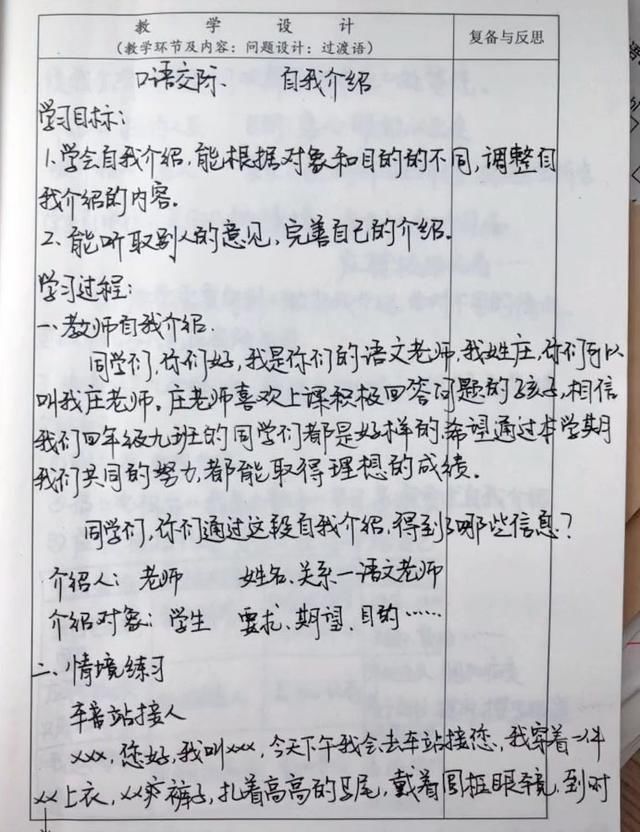 教 学 设 计
(教学环节及内容：问题设计：过渡语)
复备与反思
口语交际、 自我介绍
学习目标：
1.学会自我介绍，能根据对象和目的的不同，调整自
我介绍的内容。
2、能听取别人的意见，完善自己的介绍。
学习过程：
一、教师自我介绍.
同学们，你们好，我是你们的语文老师，我姓庄，你们可以
叫我庄老师。庄老师喜欢上课积极回答问题的孩子，相信
我们四年级九班的同学们都是好样的，希望通过本学期
我们共同的努力，都能取得理想的成绩。
同学们，你们通过这段自我介绍，得到了哪些信息？
介绍人：老师 姓名、关系—语文老师
介绍对象：学生 要求、期望、目的……
二、情境练习
车站接人
xxx，您好，我叫xxx，今天下午我会去车站接您，我穿着一件
xx上衣，xx裤子，扎着高高的马尾，戴着圆框眼镜，到时